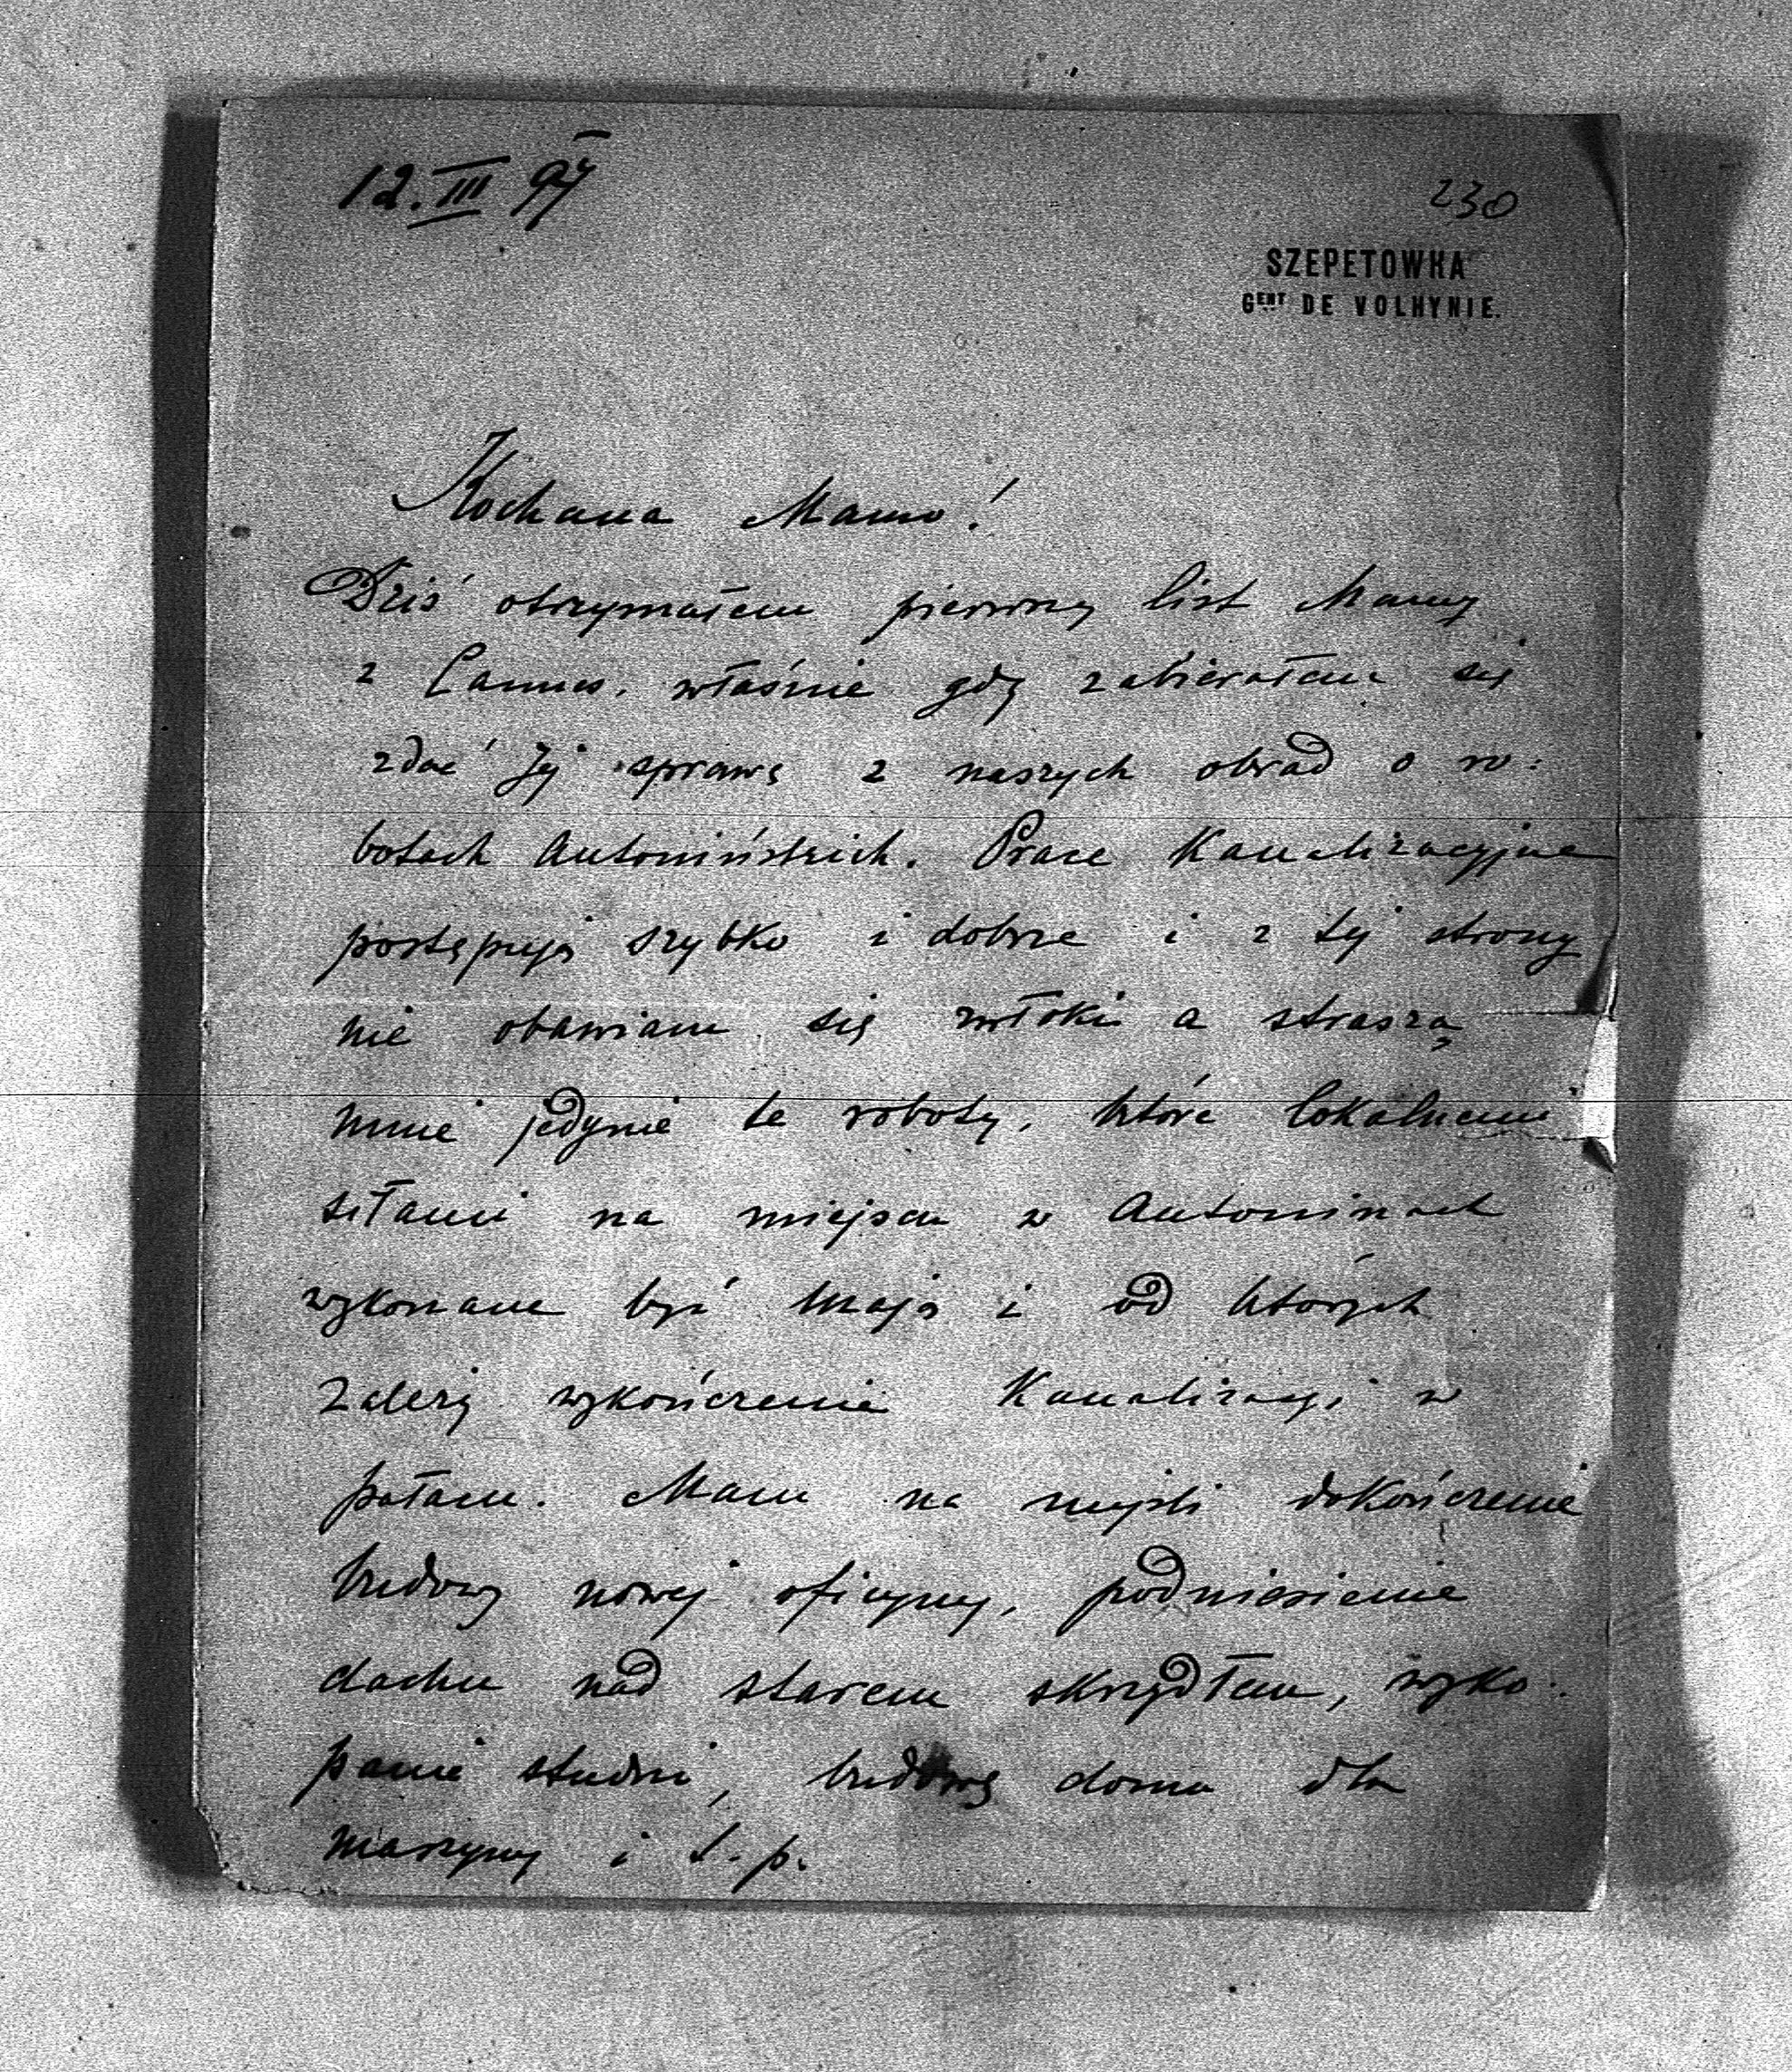 12.III 97
230
SZEPETOWKA
GENT DE VOLHYNIE.
Kochana Mamo!
Dziś otrzymałem pierwszy list Mamy
z Cannes. właśnie gdy zabierałem się
zdać Jej sprawę z naszych obrad o ro:
botach Antonińskich. Prace Kanalizacyjne
postępują szybko i dobrze i z tej strony
nie obawiam się zwłoki a straszą
mnie jedynie te roboty, które lokalnemi
siłami na miejscu w Antoninach
wykonane być mają i od których
zależy wykończenie Kanalizacyi w
pałacu. Mam na myśli dokończenie
budowy nowej oficyny, podniesienie
dachu nad starem skrzydłem, wyko:
panie studni, budowę domu dla
maszyny i t.p.